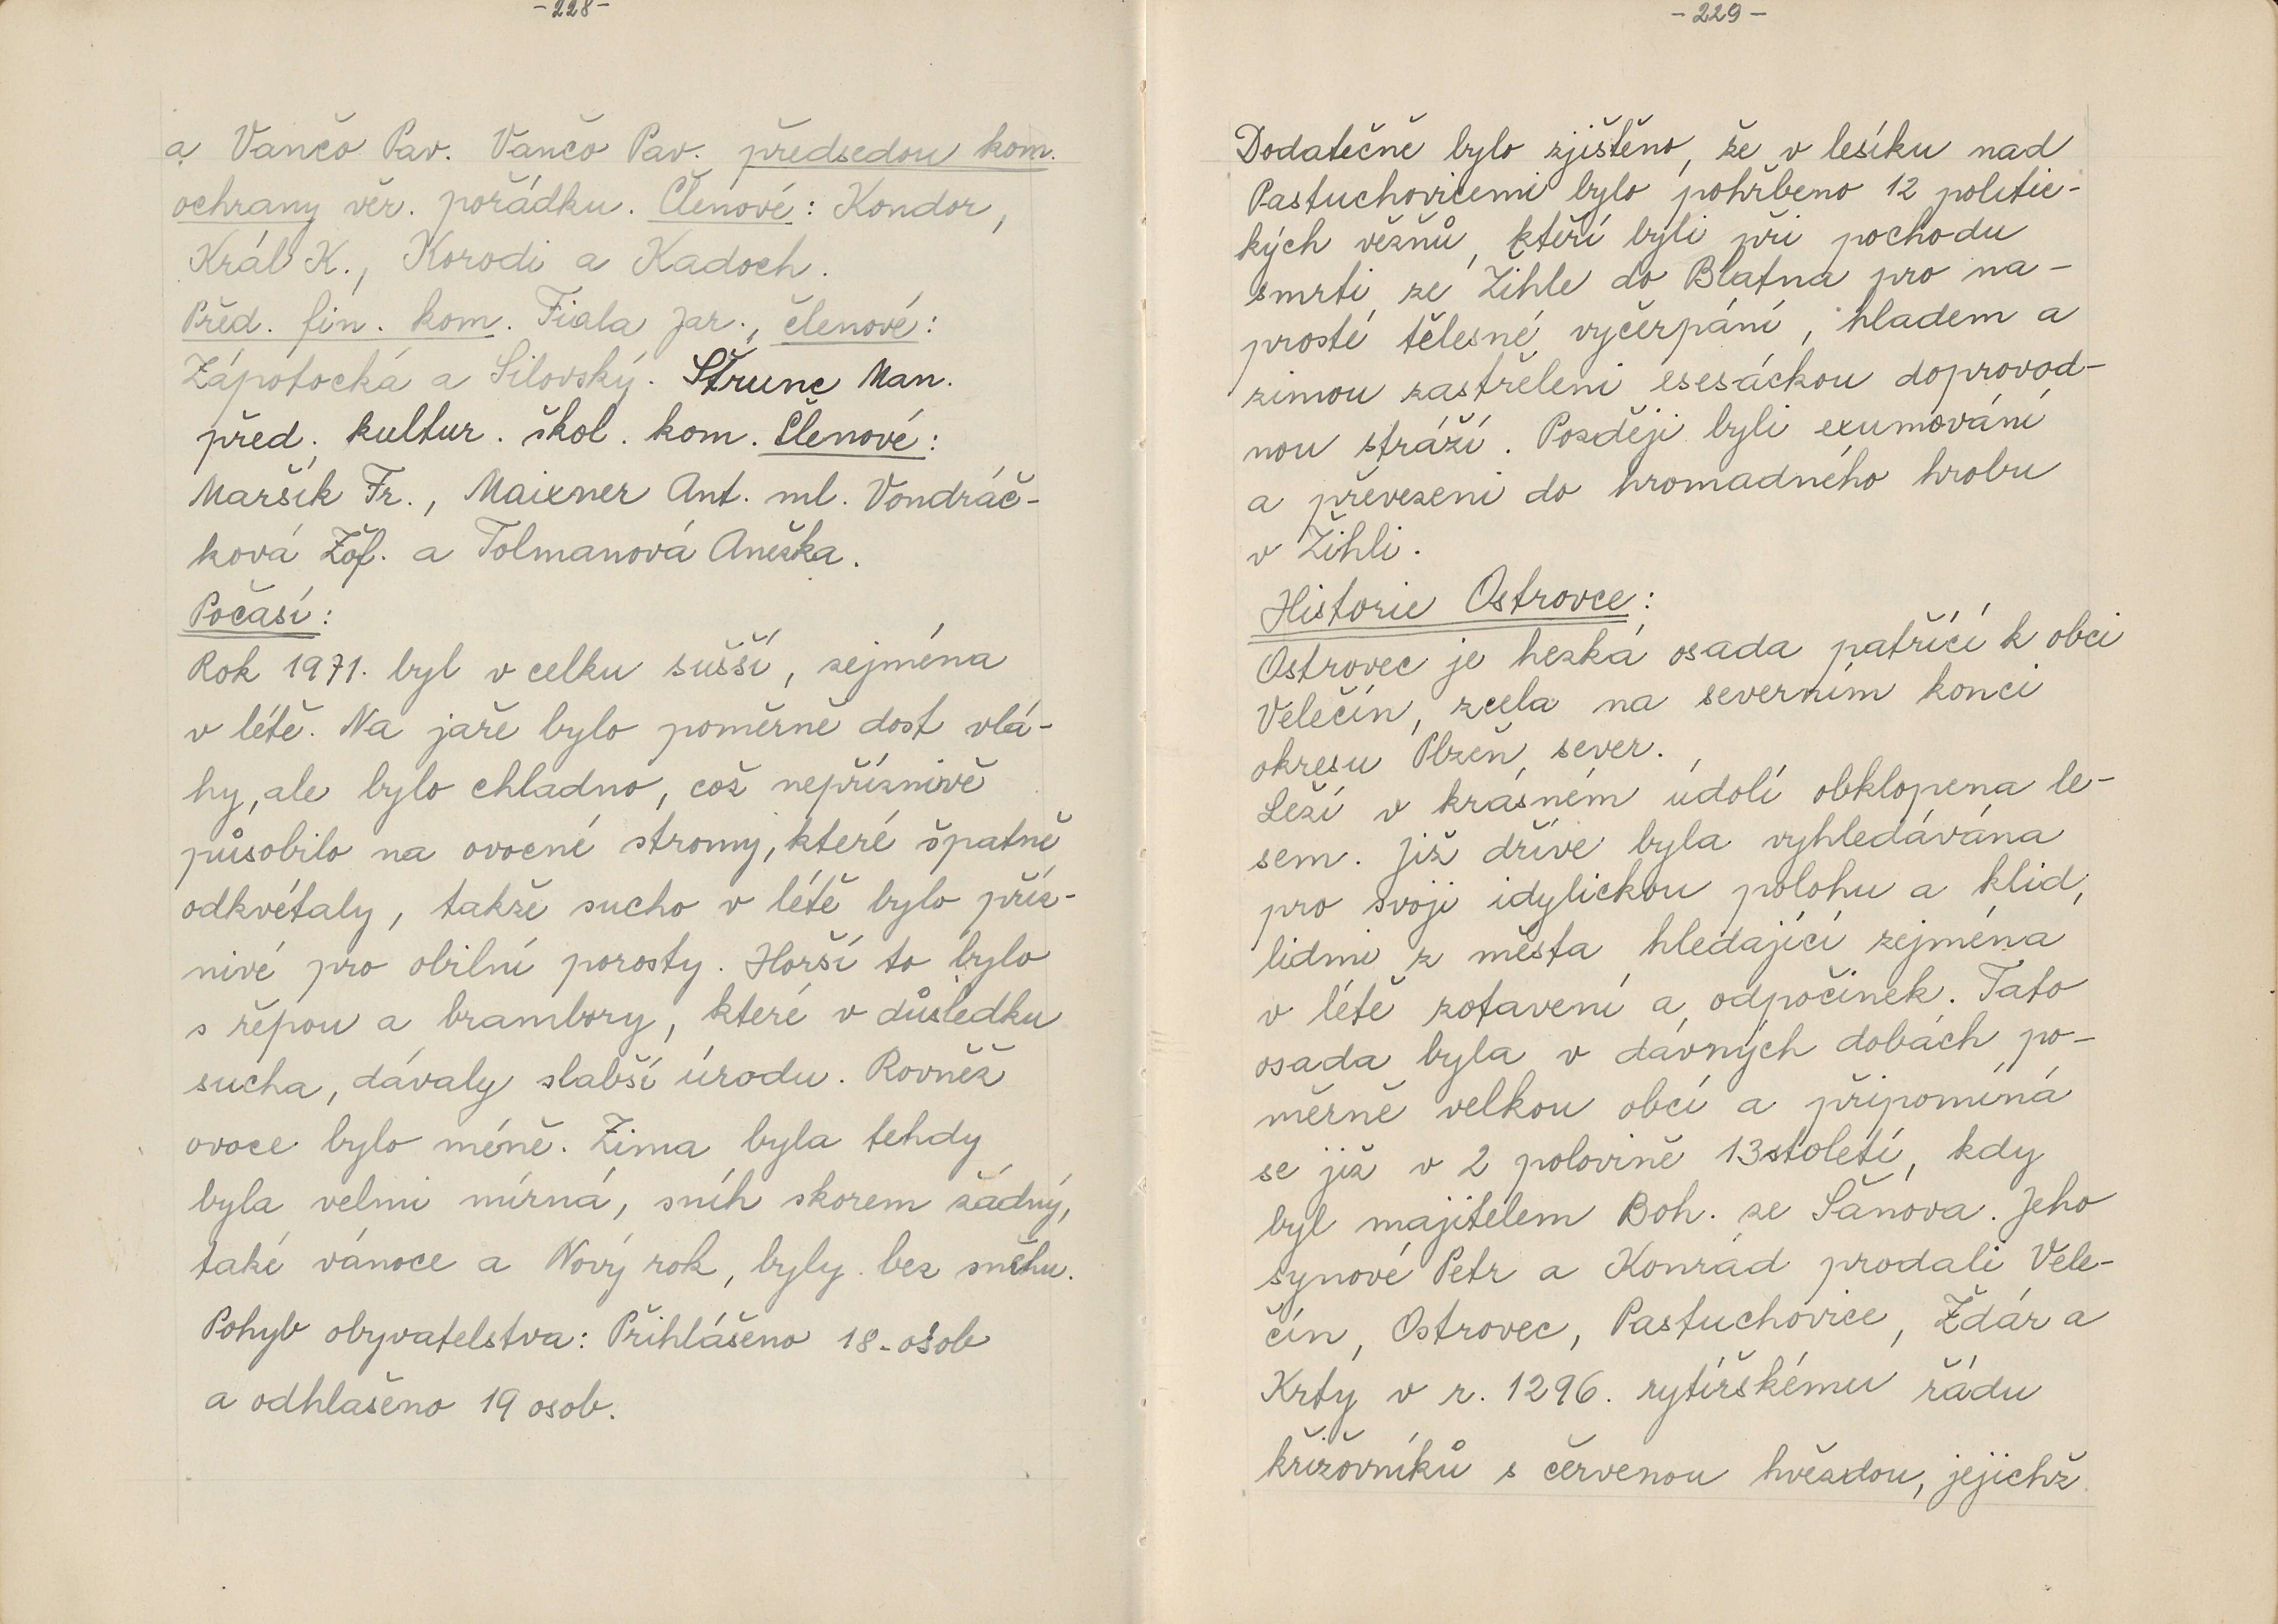 -228-
a Vančo Pav. Vančo Pav. předsedou kom.
ochrany věr. pořádku. Členové: Kondor,
Král K., Korodi a Kadoch.
Před. fin. kom. Fiala Jar., členové:
Zápotocká a Silovský. Štrunc Man.
před. kultur. škol. kom. Členové:
Maršík Fr., Maixner Ant. ml. Vondráč-
ková Žof. a Tolmanová Anežka.
Počasí:
Rok 1971. byl v celku sušší, zejména
v létě. Na jaře bylo poměrně dost vlá-
hy, ale bylo chladno, což nepříznivě
působilo na ovocné stromy, které špatně
odkvétaly, takže sucho v létě bylo příz-
nivé pro obilní porosty. Horší to bylo
s řepou a brambory, které v důsledku
sucha, dávaly slabší úrodu. Rovněž
ovoce bylo méně. Zima byla tehdy
byla velmi mírná, sníh skorem žádný,
také vánoce a Nový rok, byly bez sněhu.
Pohyb obyvatelstva: Přihlášeno 18. osob
a odhlašeno 19 osob.
-229-
Dodatečně bylo zjištěno, že v lesíku nad
Pastuchovicemi bylo pohřbeno 12 politic-
kých vězňů, kteří byli při pochodu
smrti ze Žihle do Blatna pro na-
prosté tělesné vyčerpání, hladem a
zimou zastřeleni esesáckou doprovod-
nou stráží. Později byli exumováni
a převezeni do hromadného hrobu
v Žihli.
Historie Ostrovce:
Ostrovec je hezká osada patřící k obci
Velečín, zcela na severním konci
okresu Plzeň, sever.
Leží v krásném údolí obklopena le-
sem. Již dříve byla vyhledávána
pro svoji idylickou polohu a klid,
lidmi z města hledající zejména
v létě zotavení a odpočinek. Tato
osada byla v dávných dobách po-
měrně velkou obcí a připomíná
se již v 2 polovině 13století, kdy
byl majitelem Boh. ze Šanova. Jeho
synové Petr a Konrád prodali Vele-
čín, Ostrovec, Pastuchovice, Ždár a
Krty v r. 1296. rytířskému řádu
křižovníků s červenou hvězdou, jejichž